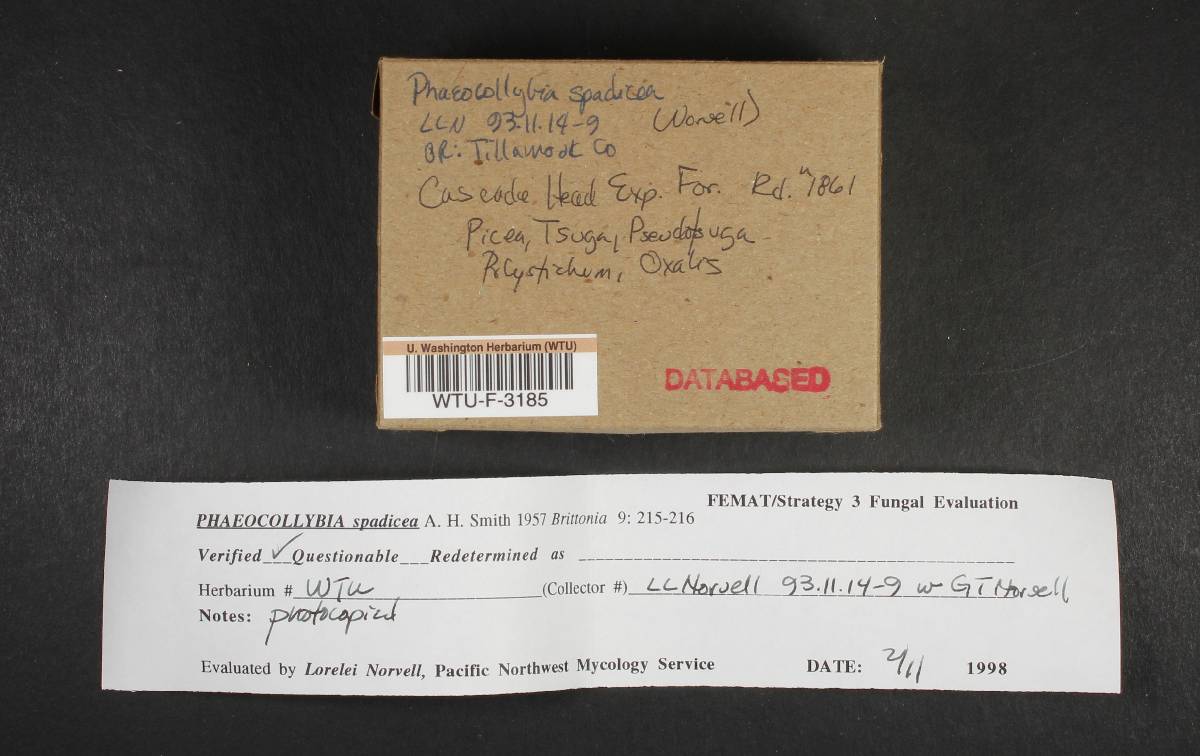 Phaeocollybia spadicea
LLN 93.11.14-9 (Norvell)
OR: Tillamook Co
Cascade Head Exp. For. Rd. "1861
Picea, Tsuga, Pseudotsuga
Polystichum, Oxalis
U. Washington Herbarium (WTU)
WTU-F-3185
DATABASED
FEMAT/Strategy 3 Fungal Evaluation
PHAEOCOLLYBIA spadicea A. H. Smith 1957 Brittonia 9: 215-216
Verified ✓ Questionable___Redetermined as ___
Herbarium # WTU (Collector #) LLNorvell 93.11.14-9 w GTNorvell
Notes: photocopied
Evaluated by Lorelei Norvell, Pacific Northwest Mycology Service DATE: 2/11 1998